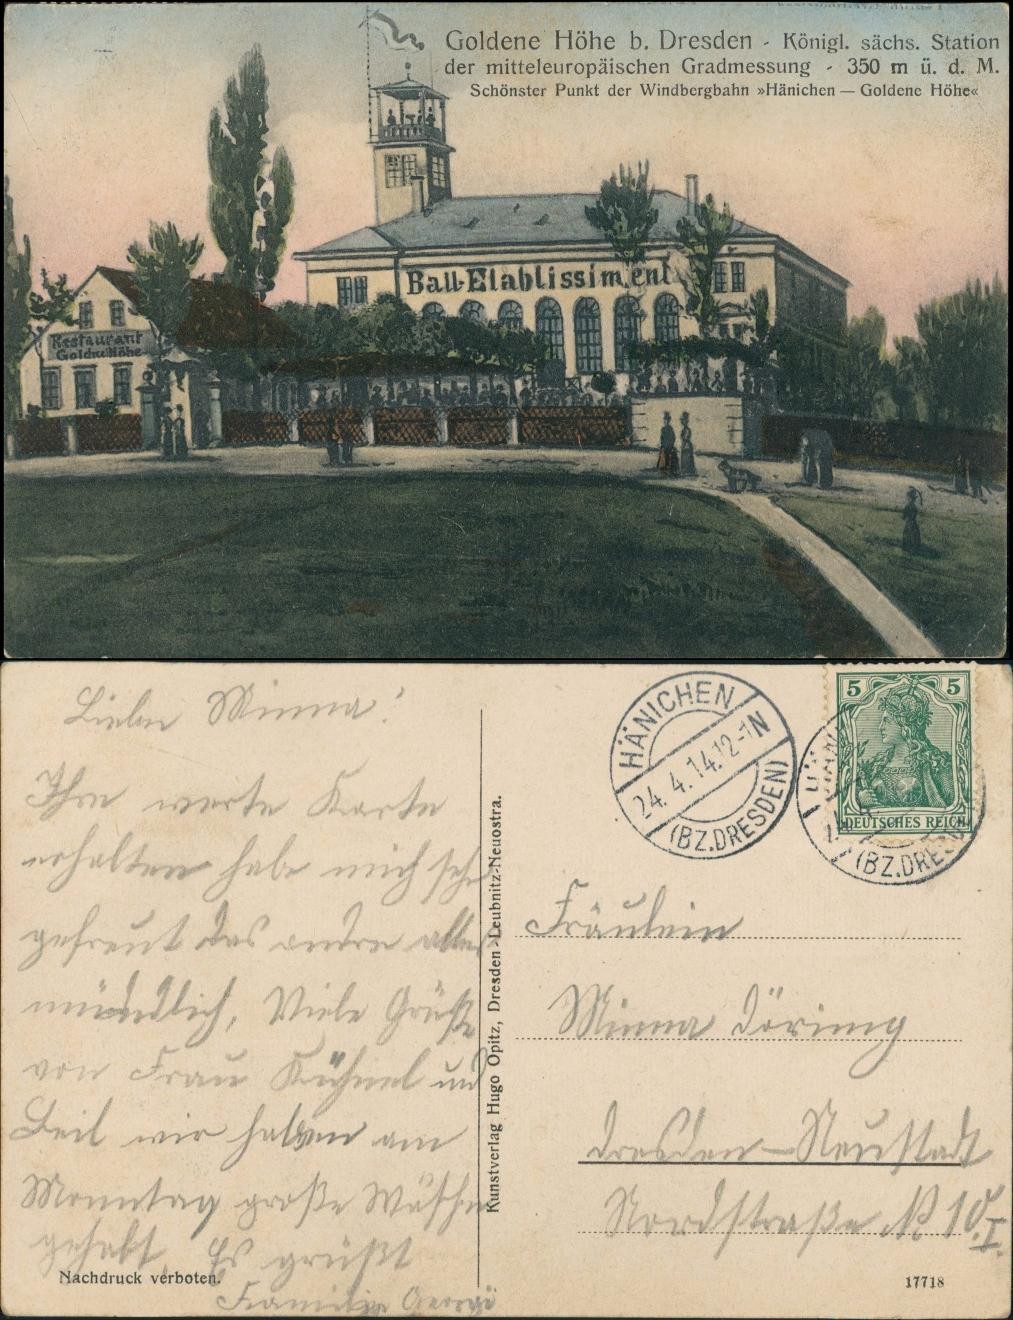 Goldene Höhe b. Dresden - Königl. sächs. Station
der mitteleuropäischen Gradmessung - 350 m ü. d. M.
Schönster Punkt der Windbergbahn »Hänichen — Goldene Höhe«
Ball-Etablissiment
Restaurant
Goldne Höhe
Liebe Minna!
Ihre werte Karte
erhalten habe mich sehr
gefreut das andre alles
mündlich, Viele Grüße
von Frau Kühnel und
wir haben am
Monntag große Wäsche
gehabt, Es grüßt
Familie Georgi
Nachdruck verboten.
Kunstverlag Hugo Opitz, Dresden-Leubnitz-Neuostra.
HÄNICHEN
24.4.14.12-1N
(BZ.DRESDEN)
5 5
DEUTSCHES REICH
(BZ.DRESD
Fräulein
Minna Döring
Dresden-Neustadt
Nordstraße № 10 I.
17718